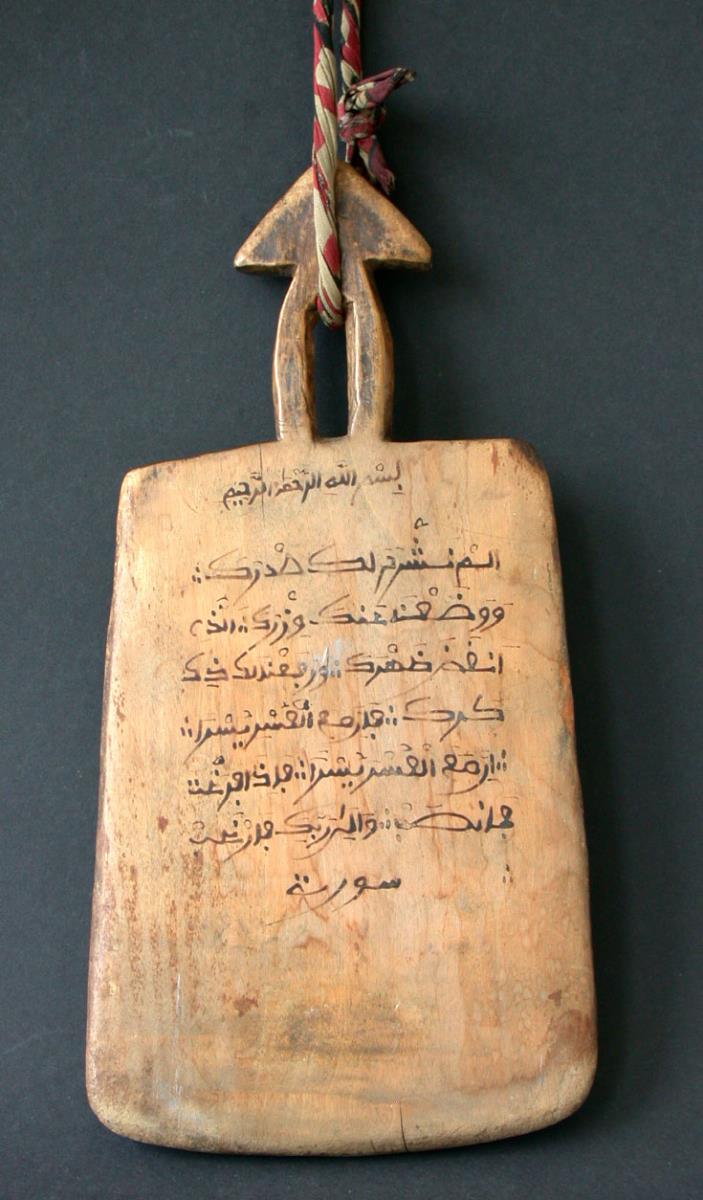 بِسْمِ اللَّهِ الرَّحْمَٰنِ الرَّحِيمِ
الَمْ نَشْرَحْ لَكَ صَدْرَكَ
وَوَضَعْنَا عَنكَ وِزْرَكَ الَّذِے
أَنقَضَ ظَهْرَكَ وَرَفَعْنَا لَكَ ذِكْ
كرك فَإِنَّ مَعَ الْعُسْرِ يُسْراً
إِنَّ مَعَ الْعُسْرِ يُسْراً فَإِذَا فَرَغْتَ
فَانصَبْ وَإِلَىٰ رَبِّكَ فَارْغَبْ
سورة